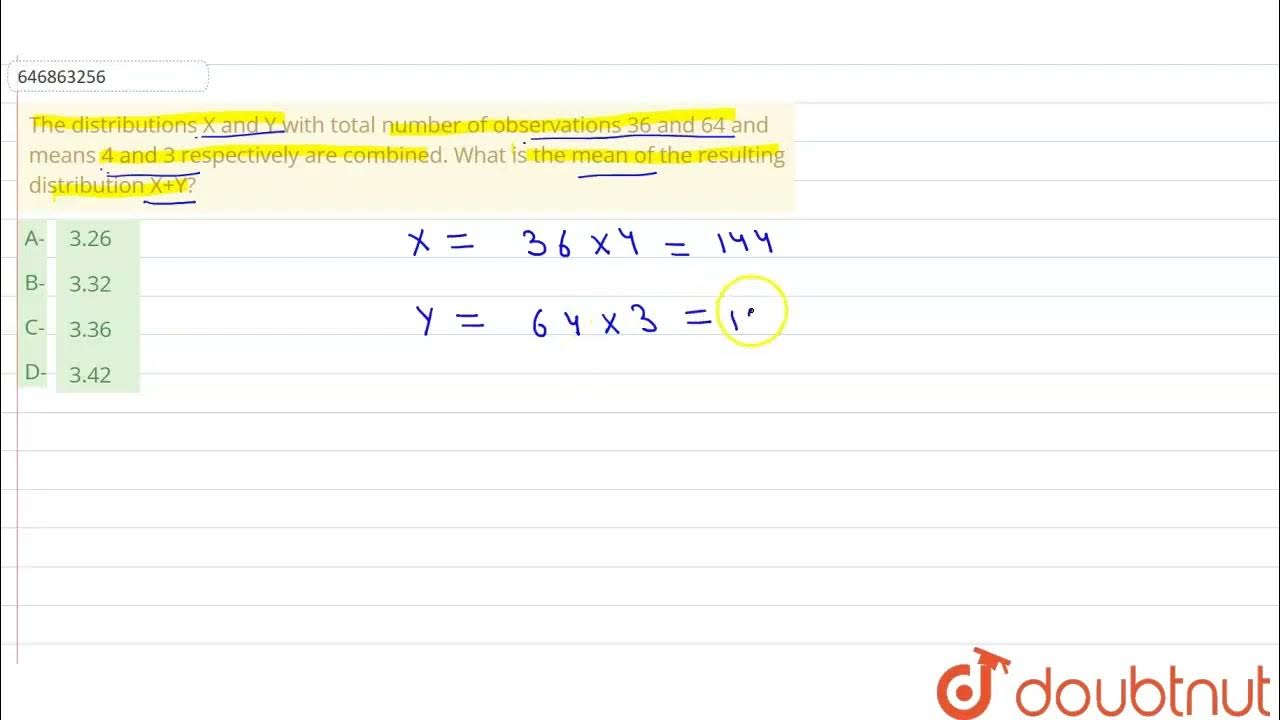 646863256
The distributions X and Y with total number of observations 36 and 64 and
means 4 and 3 respectively are combined. What is the mean of the resulting
distribution X+Y?
A- 3.26
B- 3.32
C- 3.36
D- 3.42
X = 36 x 4 = 144
Y = 64 x 3 = 1
doubtnut